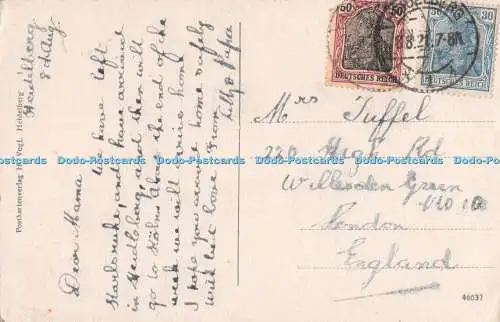 Heidelberg
8th Aug.
Dear Mama
We have left
Karlsruhe, and have arrived
in Heidleberg, and then will
go to Kölns. About the end of the
week we will arrive home
I hope you arrive home safely
with best love from
Postkartenverlag H. Vogt, Heidelberg
50
50
DEUTSCHES REICH
30
DEUTSCHES REICH
HEIDELBERG
8.21.7-8
Mrs Tuffel
220 High Rd
Willesden Green
N.W.10
London
England
46037
Dodo-Postcards Dodo-Postcards Dodo-Postcards Dodo-Postcards Dodo-Postcards